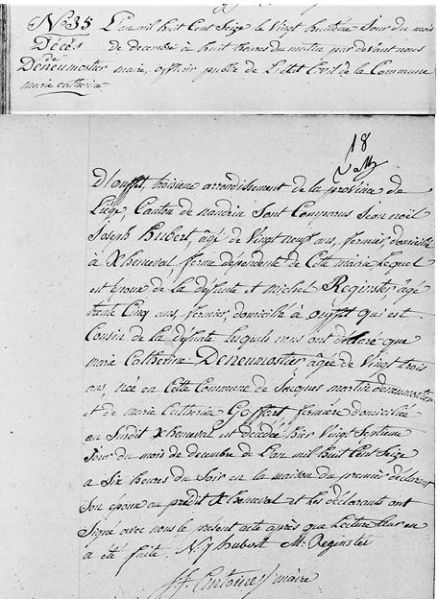 N.° 35
Décès
De Deneumoster
marie catherine
L'an mil huit Cent Seize le Vingt huitieme Jour du mois
de decembre à huit heures du matin par devant nous
maire, officier public de L'etat Civil de la Commune
18
D'ouffet, troisieme arrondissement de la province de
Liége, Canton de nandrin Sont Comparus Jean noël
Joseph hubert, âgé de Vingt neuf ans, fermier, domicilié
à Xheneval ferme dépendante de Cette mairie Lequel
est époux de la défunte et michel Reginster, âgé
trente Cinq ans, fermier, domicilié à ouffet qui est
Cousin de la défunte. Lesquels nous ont déclaré que
marie Catherine Deneumoster âgée de Vingt trois
ans, née en Cette Commune de Jacques martin deneumoster
et de marie Catherine Goffart fermière domiciliée
au Susdit Xheneval est décédée hier Vingt Septieme
Jour du mois de decembre de L'an mil huit Cent Seize
a Six heures du Soir en la maison du premier déclarant
Son époux au prédit Xheneval et les déclarants ont
Signé avec nous le present acte après que Lecture leur en
a été faite. N J hubert M. Reginster
maire